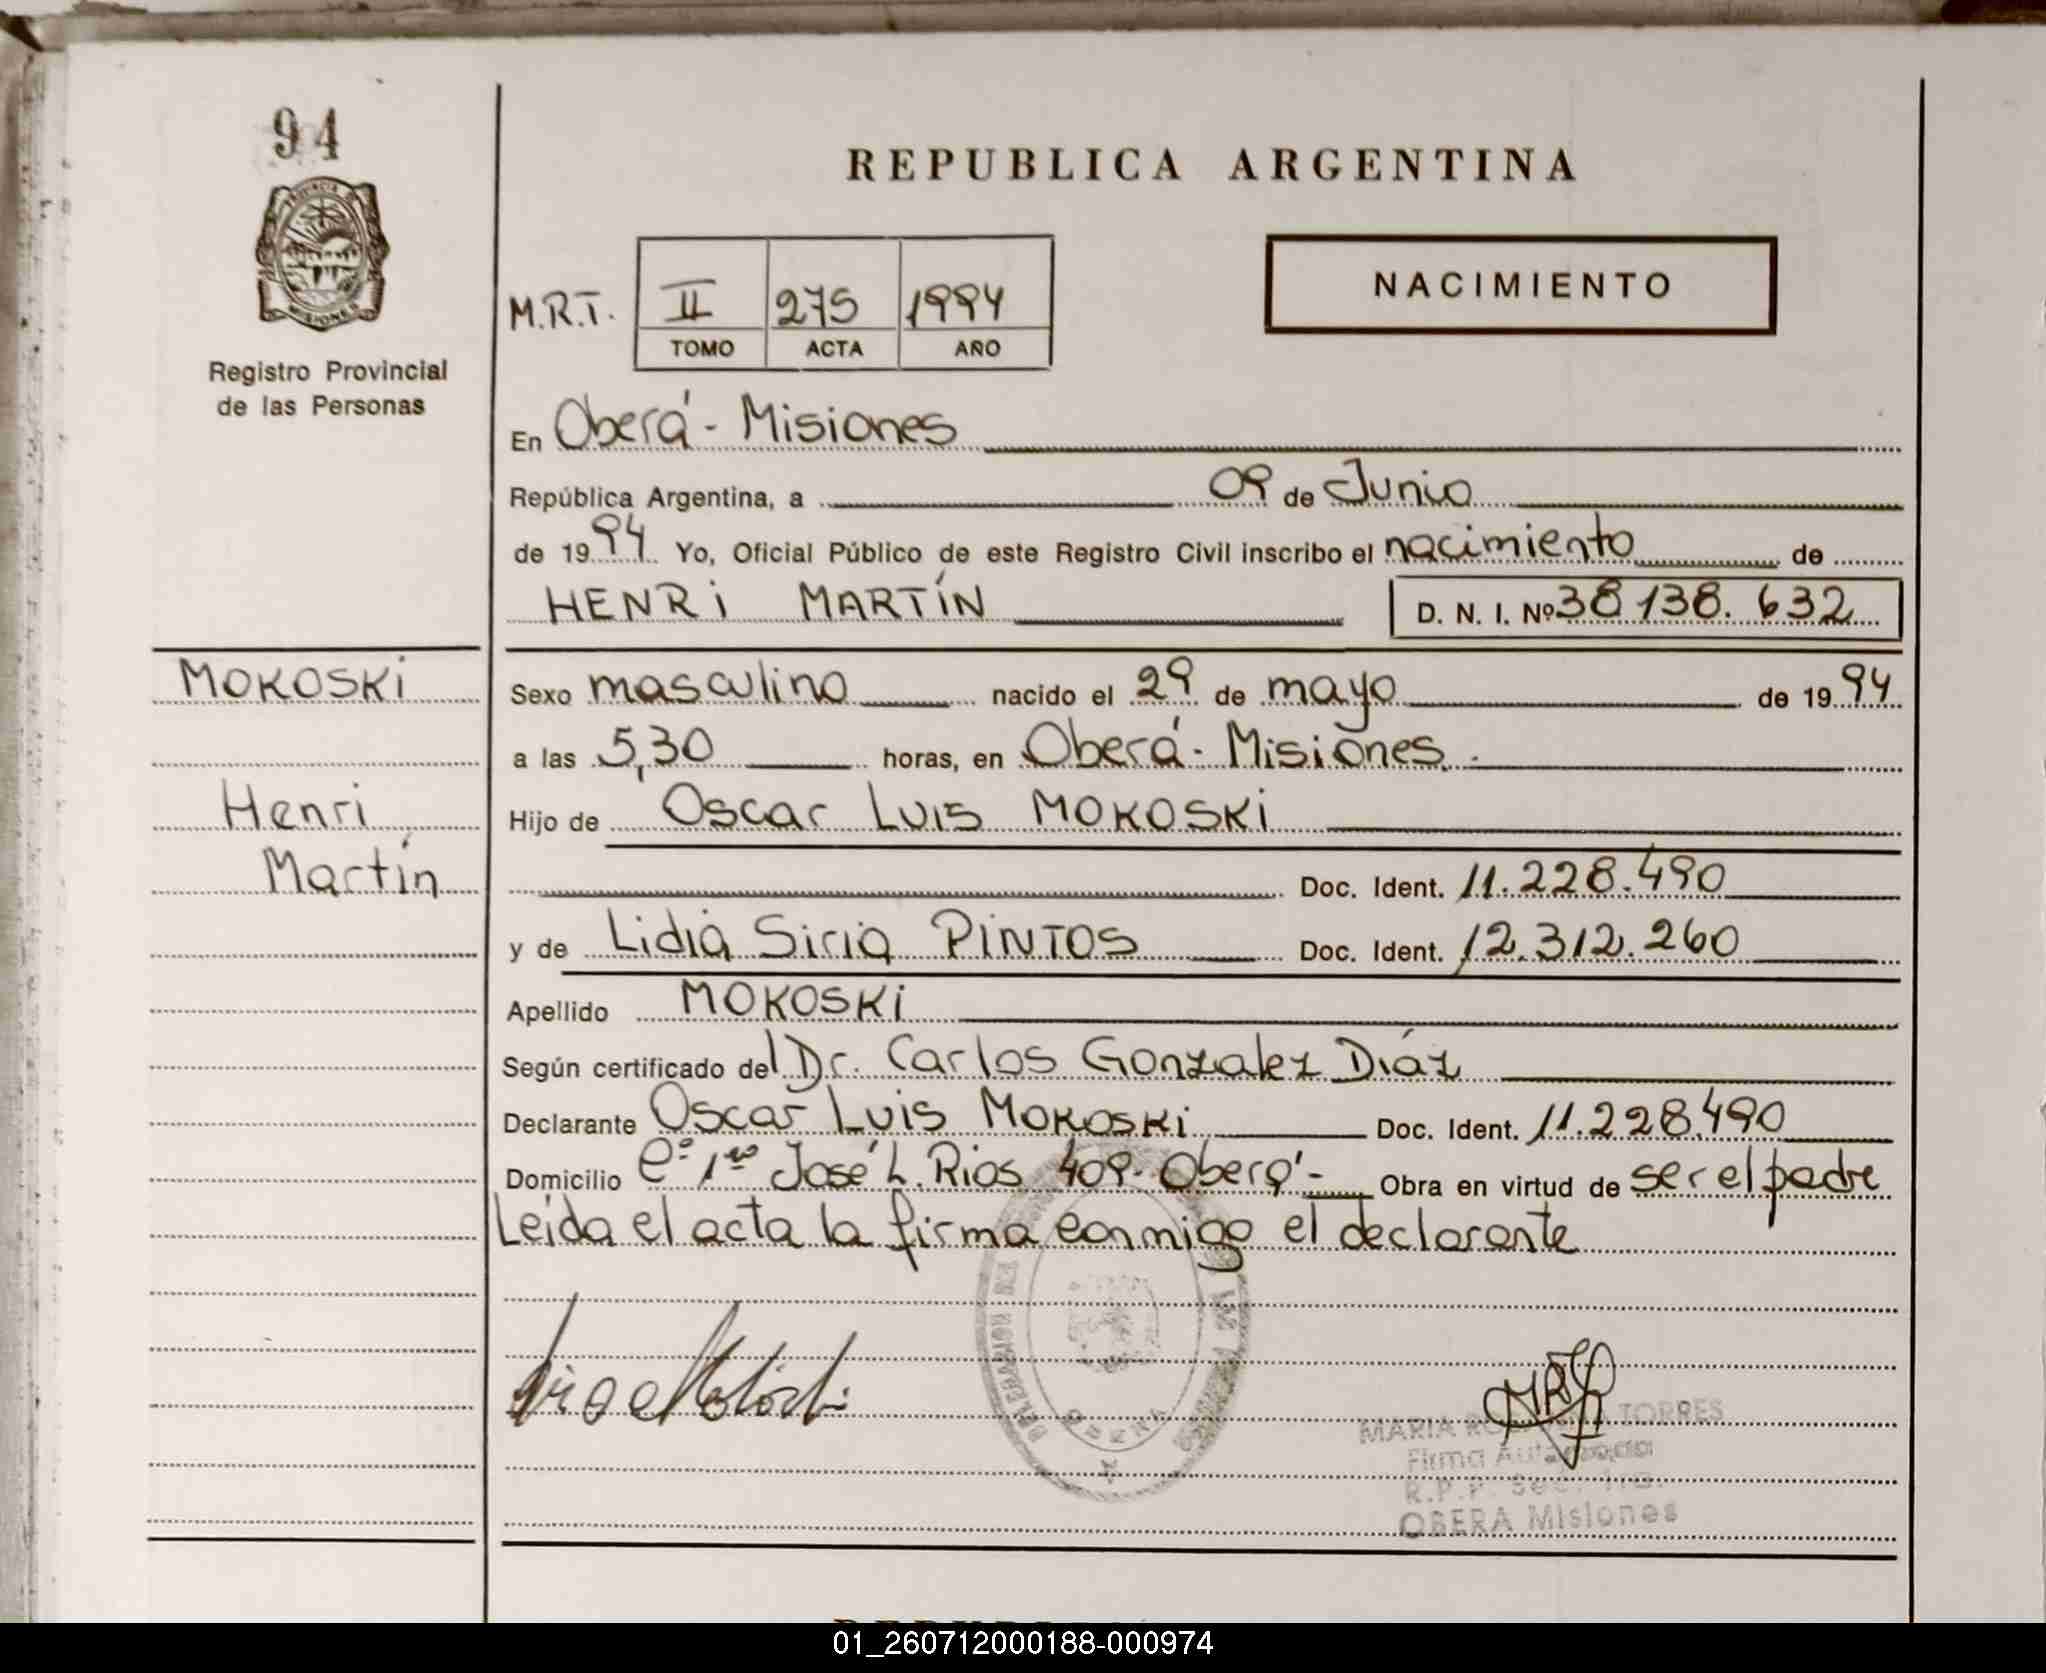 94
REPUBLICA ARGENTINA
PROVINCIA DE
MISIONES
Registro Provincial
de las Personas
NACIMIENTO
M.R.T. II 275 1994
TOMO ACTA AÑO
En Oberá - Misiones
República Argentina, a 09 de Junio
de 1994 Yo, Oficial Público de este Registro Civil inscribo el nacimiento de
HENRi MARTÍN D. N. I. Nº 38.138.632
MOKOSKi
Henri
Martín
Sexo masculino nacido el 29 de mayo de 1994
a las 5,30 horas, en Oberá - Misiones.-
Hijo de Oscar Luis MOKOSKi
Doc. Ident. 11.228.490
y de Lidia Siria PiNTOS Doc. Ident. 12.312.260
Apellido MOKOSKi
Según certificado del Dr. Carlos Gonzalez Díaz
Declarante Oscar Luis MOKOSKi Doc. Ident. 11.228.490
Domicilio José L. Rios 409- Oberá - Obra en virtud de ser el padre
Leida el acta la firma conmigo el declarante
DELEGACION
OBERA
MARIA TORRES
Firma Autorizada
R.P.P. Sec. 1ra.
OBERA Misiones
01_260712000188-000974